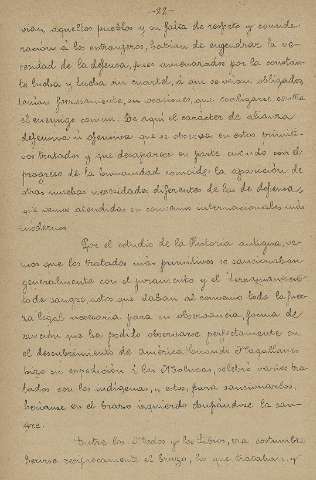 -22-
vían aquellos pueblos y su falta de respeto y conside-
ración á los extranjeros, habían de engendrar la ne-
cesidad de la defensa, pues amenazados por la constan-
te lucha y lucha sin cuartel, á un se vían obligados
tenían forzosamente, en ocasiones, que coaligarse contra
el enemigo común. De aquí el carácter de alianza
defensiva ú ofensiva que se observa en estos primiti-
vos tratados y que desaparece en parte cuando con el
progreso de la humanidad coincide la aparición de
otras muchas necesidades diferentes de las de defensa,
que vemos atendidas en convenios internacionales más
modernos.
Por el estudio de la Historia antigua, ve-
mos que los tratados más primitivos se sancionaban
generalmente con el juramento y el derramamien-
to de sangre, actos que daban al convenio toda la fuer-
za legal necesaria para su observancia, forma de
sanción que ha podido observarse perfectamente en
el descubrimiento de América. Cuando Magallanes
hizo su expedición á las Molucas, celebró varios tra-
tados con los indígenas, y estos, para sancionarlos,
heríanse en el brazo izquierdo chupándose la san-
gre.
Entre los Medos y los Lidios, era costumbre
herirse recíprocamente el brazo, los que trataban, y